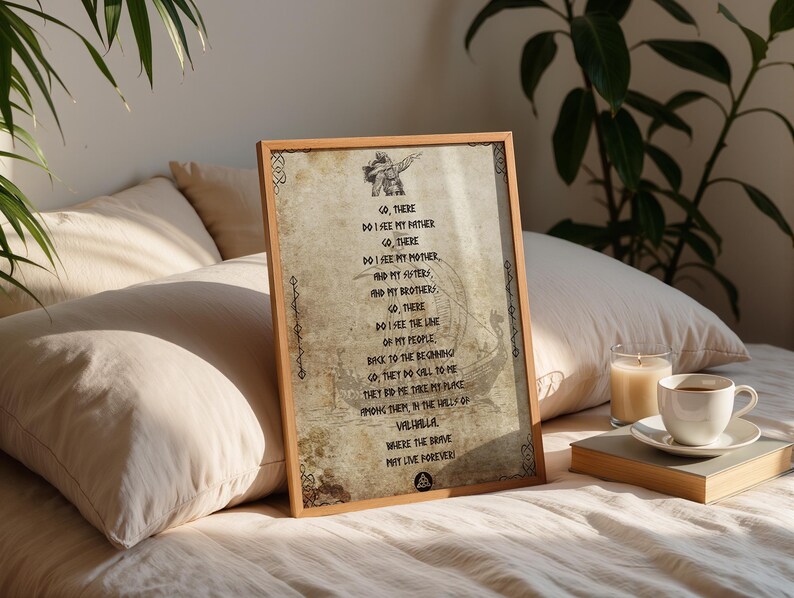 GO, THERE
DO I SEE MY FATHER
GO, THERE
DO I SEE MY MOTHER,
AND MY SISTERS,
AND MY BROTHERS.
GO, THERE
DO I SEE THE LINE
OF MY PEOPLE,
BACK TO THE BEGINNING!
GO, THEY DO CALL TO ME
THEY BID ME TAKE MY PLACE
AMONG THEM, IN THE HALLS OF
VALHALLA.
WHERE THE BRAVE
MAY LIVE FOREVER!